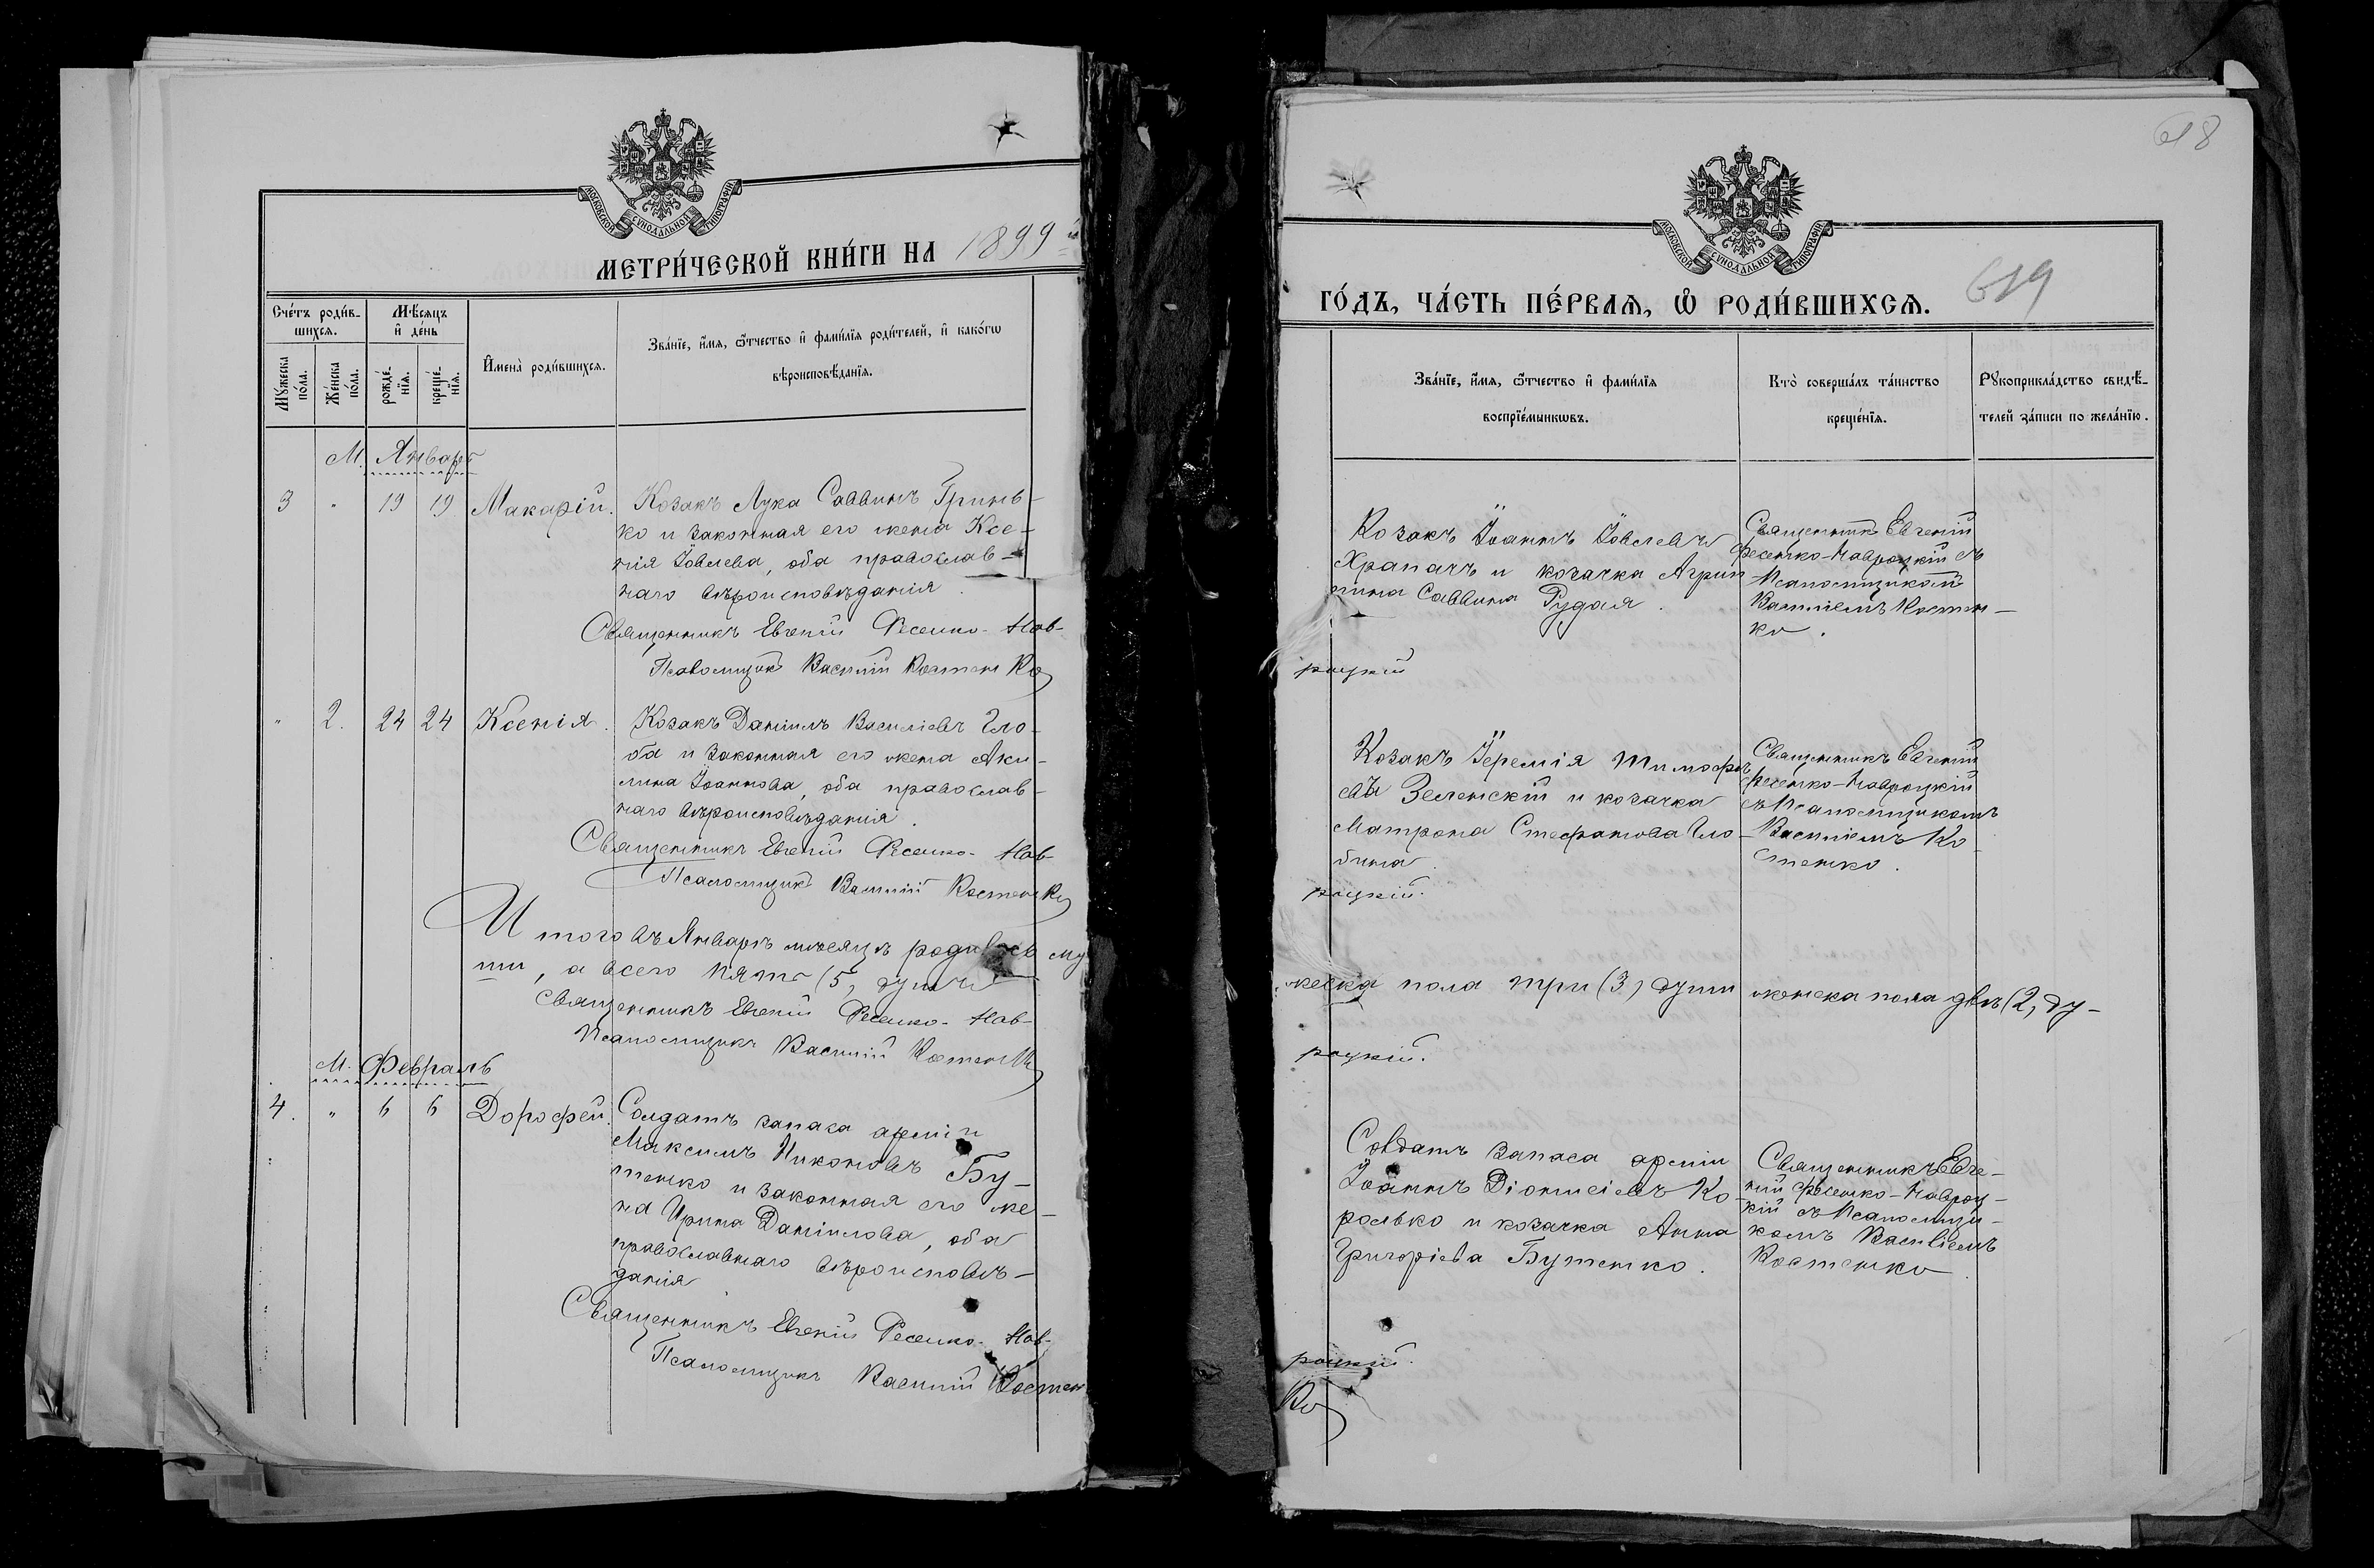 МОСКОВСКОЙ СУНОДАЛЬНОЙ ТИПОГРАФІИ
МЕТРИ́ЧЕСКОЙ КНИ́ГИ НА 1899
Сче́тъ роди́в-
шихсѧ.
Мѣ́сѧцъ
и҆ де́нь
Мꙋ́жеска
по́ла.
Же́нска
по́ла.
рожде́-
нїѧ.
креще́-
нїѧ.
И҆мена̀ роди́вшихсѧ.
Зва́нїе, и҆́мѧ, ѻ҆́тчество и҆ фами́лїѧ роди́телей, и҆ како́гѡ
вѣроисповѣ́данїѧ.
М. Январь
3 " 19 19 Макарій.
Козакъ Лука Саввинъ Гринь-
ко и законная его жена Ксе-
нія Іовлева, оба православ-
наго вѣроисповѣданія.
Священникъ Евгеній Фесенко-Нав-
Псаломщикъ Василій Костенко
" 2. 24 24 Ксенія.
Козакъ Даніилъ Василіевъ Гло-
ба и законная его жена Аки-
лина Іоаннова, оба православ-
наго вѣроисповѣданія.
Священникъ Евгеній Фесенко-Нав-
Псаломщикъ Василій Костенко
Итого въ Январѣ мѣсяцѣ родилось му-
ши, а всего пять (5) душъ
Священникъ Евгеній Фесенко-Нав-
Псаломщикъ Василій Костенко
М. Февраль
4. " 6 6 Дорофей.
Солдатъ запаса арміи
Максимъ Никоновъ Бу-
тенко и законная его же-
на Ирина Даніилова, оба
православнаго вѣроисповѣ-
данія
Священникъ Евгеній Фесенко-Нав-
Псаломщикъ Василій Костен
618
МОСКОВСКОЙ СУНОДАЛЬНОЙ ТИПОГРАФІИ
ГО́ДЪ, ЧА́СТЬ ПЕ́РВАѦ, Ѡ҆ РОДИ́ВШИХСѦ. 619
Зва́нїе, и҆́мѧ, ѻ҆́тчество и҆ фами́лїѧ
воспрїе́мникѡвъ.
Кто̀ соверша́лъ та́инство
креще́нїѧ.
Рꙋкоприкла́дство свидѣ́-
телей за́писи по жела́нїю.
Козакъ Іоаннъ Іовлевъ
Храпачъ и козачка Агрип-
пина Саввина Рудая.
Священникъ Евгеній
Фесенко-Навроцкій съ
Псаломщикомъ
Василіемъ Костен-
ко.
роцкій
Козакъ Іеремія Тимофе-
евъ Зеленскій и козачка
Матрона Стефанова Гло-
бина.
Священникъ Евгеній
Фесенко-Навроцкій
съ Псаломщикомъ
Василіемъ Ко-
стенко.
роцкій.
жеска пола три (3) души женска пола двѣ (2) ду-
роцкій.
Солдатъ запаса арміи
Іоаннъ Діонисіевъ Ко-
ролько и козачка Анна
Григоріева Бутенко.
Священникъ Евге-
ній Фесенко-Навроц-
кій съ Псаломщи-
комъ Василіемъ
Костенко.
роцкій.
ко